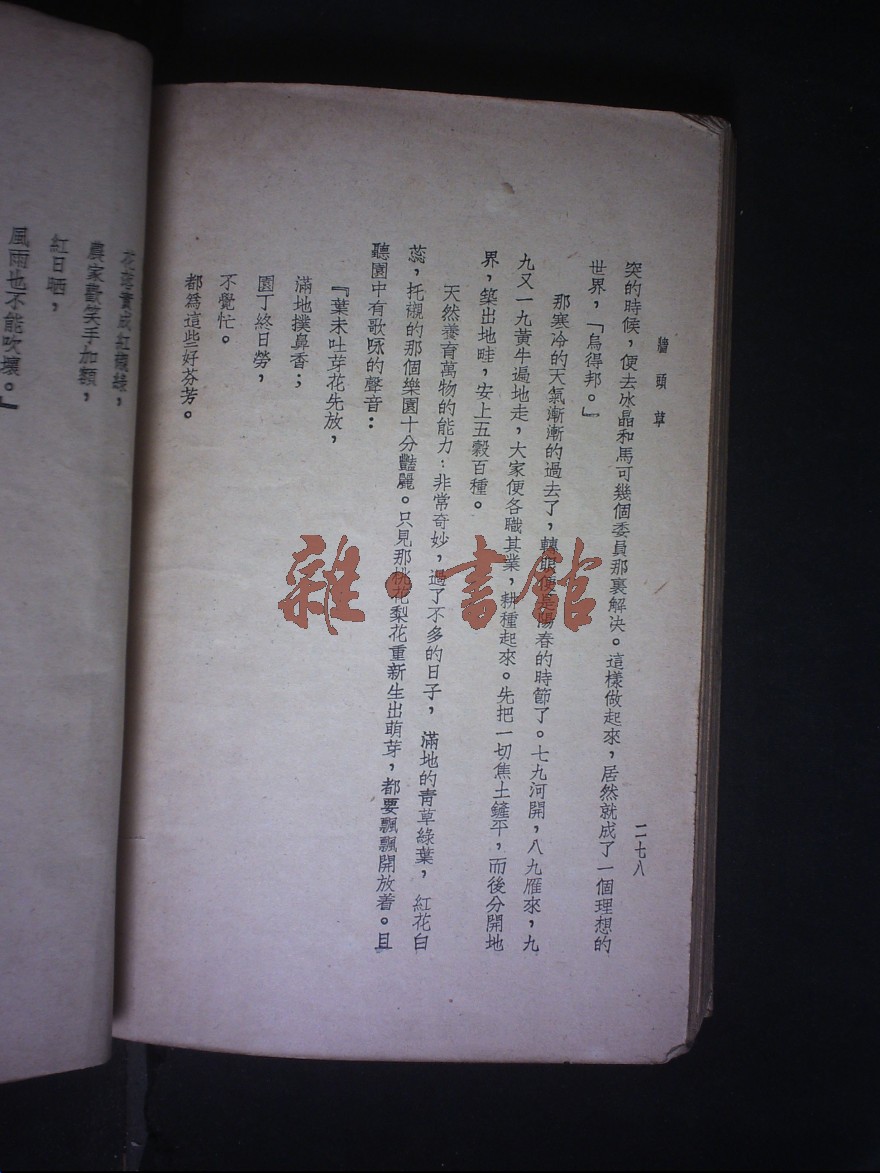 牆頭草
二七八
突的時候，便去冰晶和馬可幾個委員那裏解決。這樣做起來，居然就成了一個理想的
世界，「烏得邦。」
那寒冷的天氣漸漸的過去了，轉眼便是陽春的時節了。七九河開，八九雁來，九
九又一九黃牛遍地走，大家便各職其業，耕種起來。先把一切焦土鏟平，而後分開地
界，築出地畦，安上五穀百種。
天然養育萬物的能力：非常奇妙，過了不多的日子，滿地的青草綠葉，紅花白
蕊，托襯的那個樂園十分豔麗。只見那桃花梨花重新生出萌芽，都要飄飄開放着。且
聽園中有歌詠的聲音：
『葉未吐芽花先放，
滿地撲鼻香；
園丁終日勞，
不覺忙。
都爲這些好芬芳。
花落實成紅襯綠，
農家歡笑手加額，
紅日晒，
風雨也不能吹壞。』
雜·書館